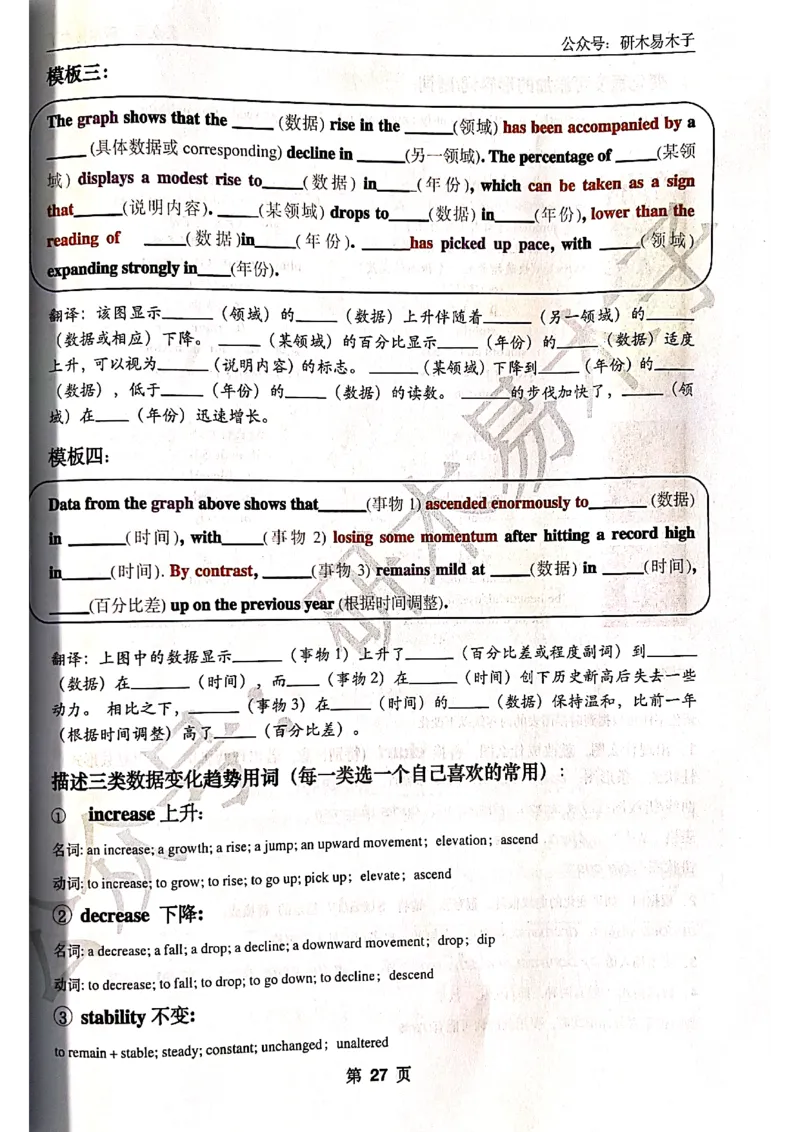 公众号：研木易木子
模板三：
The graph shows that the _____ (数据) rise in the _____(领域) has been accompanied by a
_____ (具体数据或 corresponding) decline in _____(另一领域). The percentage of _____(某领
域) displays a modest rise to_____(数据) in_____(年份), which can be taken as a sign
that_____(说明内容). _____(某领域) drops to_____(数据) in_____(年份), lower than the
reading of _____(数据)in_____(年份). _____has picked up pace, with _____(领域)
expanding strongly in____(年份).
翻译：该图显示_____（领域）的____（数据）上升伴随着_____（另一领域）的_____
（数据或相应）下降。_____（某领域）的百分比显示_____（年份）的_____（数据）适度
上升，可以视为_____（说明内容）的标志。_____（某领域）下降到____（年份）的_____
（数据），低于_____（年份）的_____（数据）的读数。_____的步伐加快了，_____（领
域）在____（年份）迅速增长。
模板四：
Data from the graph above shows that_____(事物 1) ascended enormously to______ (数据)
in ______(时间), with____(事物 2) losing some momentum after hitting a record high
in_____(时间). By contrast, _____(事物 3) remains mild at ____(数据) in ____(时间),
____(百分比差) up on the previous year (根据时间调整).
翻译：上图中的数据显示_____（事物1）上升了_____（百分比差或程度副词）到_____
（数据）在______（时间），而____（事物2）在_____（时间）创下历史新高后失去一些
动力。 相比之下，_____（事物3）在____（时间）的____（数据）保持温和，比前一年
（根据时间调整）高了____（百分比差）。
描述三类数据变化趋势用词（每一类选一个自己喜欢的常用）：
① increase 上升:
名词: an increase; a growth; a rise; a jump; an upward movement；elevation；ascend
动词: to increase; to grow; to rise; to go up; pick up；elevate；ascend
② decrease 下降:
名词: a decrease; a fall; a drop; a decline; a downward movement；drop；dip
动词: to decrease; to fall; to drop; to go down; to decline；descend
③ stability 不变:
to remain + stable; steady; constant; unchanged；unaltered
第 27 页